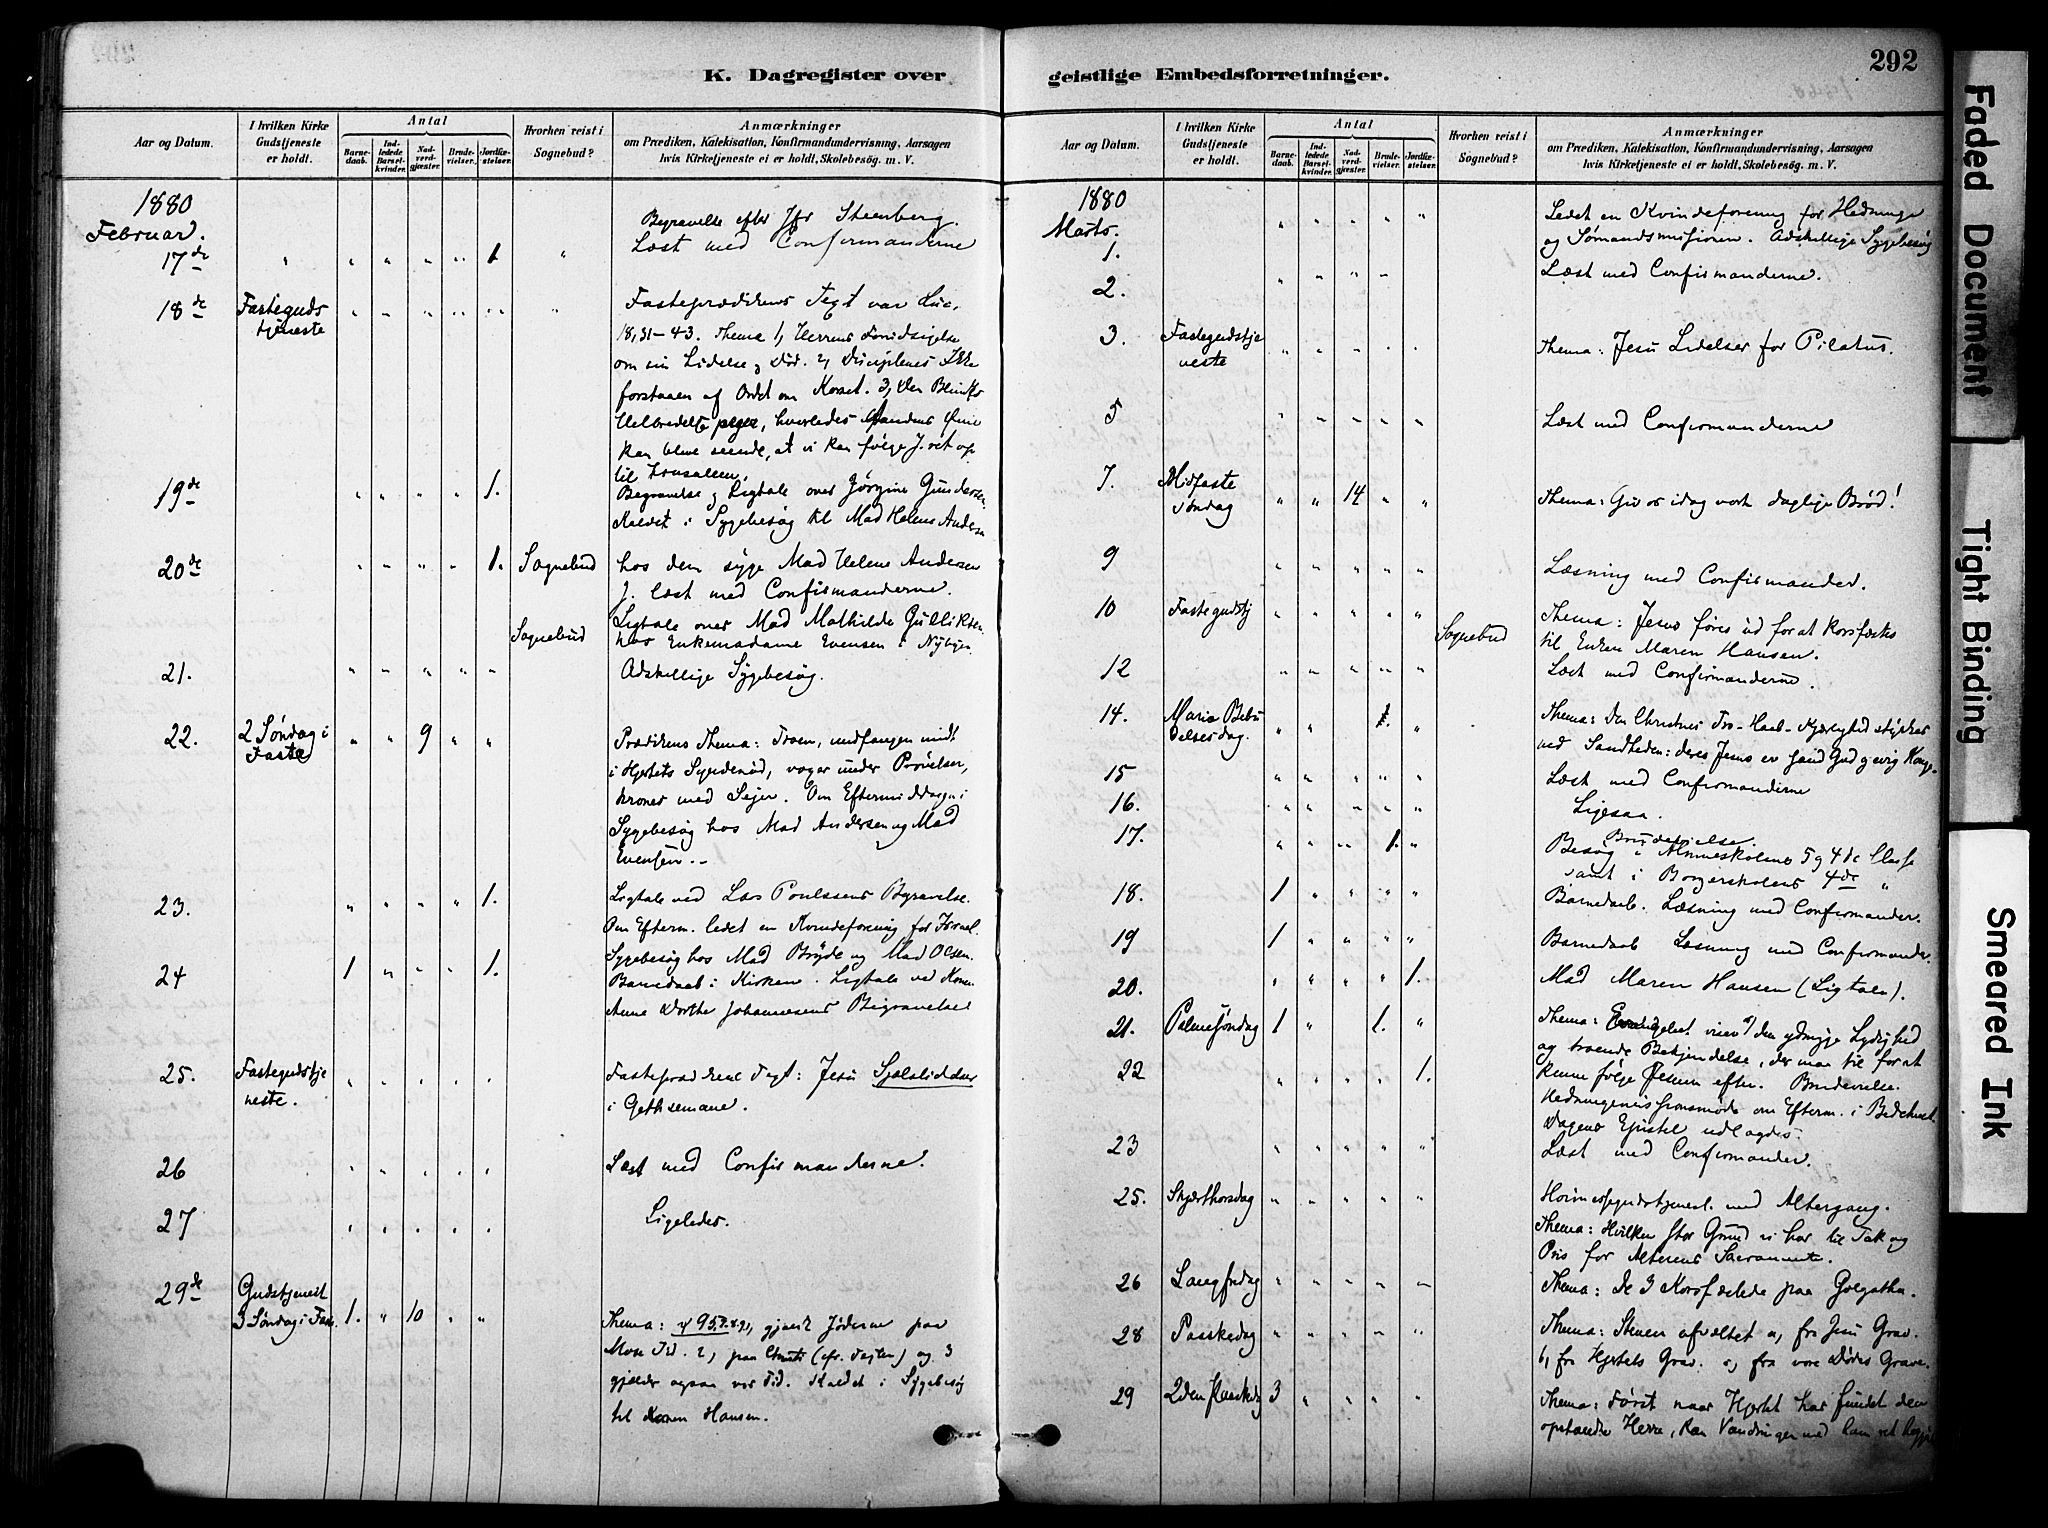 K. Dagregister over
Aar og Datum.
I hvilken Kirke Gudstjeneste er holdt.
Antal
Barne-daab.
Ind-ledede Barsel-kvinder.
Nad-verd-gjæster.
Brude-vielser.
Jordfæ-stelser.
Hvorhen reist i Sognebud?
Anmærkninger
om Prædiken, Katekisation, Konfirmandundervisning, Aarsagen
hvis Kirketjeneste ei er holdt, Skolebesøg. m. V.
1880
Februar.
Begravelse efter Jfr Steenberg.
17de " " " " " 1 " Læst med Confirmanderne
18de Fastegudstjeneste " " " " " " Fasteprædikens Text var Luc.
18,31-43. Thema 1, Herrens Forudsigelse
om sin Lidelse og Død. 2, Disciplenes Ikke
forstaaen af Ordet om Korset. 3, den Blindes
Helbredelse peger, hvorledes Aandens Øine
kan blive seende, at vi kan følge J. ret op
til Jerusalem.
19de " " " " 1. Begravelse og Ligtale over Jørgine Gundersen
Kaldet i Sygebesøg til Mad Helene Andersen
20de " " " " 1. Sognebud hos den syge Mad Helene Andersen
J. læst med Confirmanderne.
Ligtale over Mad Mathilde Gulliksen.
Sognebud hos Enkemadame Evensen i Nybyen
21. " " " " " Adskillige Sygebesøg.
22. 2 Søndag i Faste " " 9 " " Prædikens Thema: Troen, undfangen midt
i Hjertets Syndenød, voxer under Prøvelser,
krones med Sejer. Om Eftermiddagen i
Sygebesøg hos Mad Andersen og Mad
Evensen.
23. " " " " 1. Ligtale ved Lars Poulssens Begravelse.
Om Efterm. ledet en Kvindeforening for Israel.
Sygebesøg hos Mad Brÿde og Mad Olsen.
24 1 " " " 1. Barnedaab i Kirken. Ligtale ved Konen
Anne Dorthe Johannesens Begravelse
25. Fastegudstjeneste. " " " " " Fasteprædikens Text: Jesu Sjælslidelser
i Gethsemane.
26 " " " " " Læst med Confirmanderne.
27 " " " " " Ligeledes.
29de Gudstjenest
3 Søndag i Faste. 1. " 10 " " Thema: 95 gjældt Jøderne paa
Mose Tid. 2, paa Christi (cfr. Texten) og 3
gjælder ogsaa vor Tid. Kaldet i Sygebesøg
til Maren Hansen.
geistlige Embedsforretninger.
292
Aar og Datum.
I hvilken Kirke Gudstjeneste er holdt.
Antal
Barne-daab.
Ind-ledede Barsel-kvinder.
Nad-verd-gjæster.
Brude-vielser.
Jordfæ-stelser.
Hvorhen reist i Sognebud?
Anmærkninger
om Prædiken, Katekisation, Konfirmandundervisning, Aarsagen
hvis Kirketjeneste ei er holdt, Skolebesøg. m. V.
1880
Marts.
1. " " " " " Ledet en Kvindeforening for Hedninge
og Sømandsmissionen. Adskillige Sygebesøg
2. " " " " Læst med Confirmanderne.
3. Fastegudstjeneste " " " " " Thema: Jesu Lidelser for Pilatus.
5 " " " " " Læst med Confirmanderne
7. Midfastesøndag " " 14 " " Thema: Giv os idag vort daglige Brød!
9 " " " " " Læsning med Confirmander.
10 Fastegudstj " " " " " Thema: Jesus føres ud for at korsfæstes
Sognebud til Enken Maren Hansen.
12 " " " " " Læst med Confirmanderne.
14. Maria Bebudelsesdag. " " 1. " Thema: Den Christnes Tro-Haab-Kjærlighed styrkes
ved Sandheden: deres Jesus er sand Gud og evig Konge.
15 " " " " " Læst med Confirmanderne
16. " " " " " Ligesaa.
17. " " " 1. " Brudevielse.
Besøg i Almueskolens 5 og 4de Classe
samt i Borgerskolens 4de "
18. 1 " " " " Barnedaab. Læsning med Confirmander.
19 1 " " " " Barnedaab Læsning med Confirmander.
20. " " " " 1. Mad Maren Hansen (Ligtalen).
21. Palmesøndag 1 " 1. " Thema: Evangeliet viser den ydmyge Lydighed
og troende Bekjendelse, der maa til for at
kunne følge Jesum efter. Brudevielse.
22 " " " " 1. Hedningemissionsmøde om Efterm. i Bedehuset.
Dagens Epistel udlagdes.
23 " " " " " Læst med Confirmander.
25. Skjærthorsdag " " " " " Høimessegudstjenest. med Altergang.
Thema: Hvilken stor Grund vi har til Tak og
Pris for Alterens Sacramente.
26 Langfredag " " " " " Thema: De 3 Korsfæstede paa Golgatha.
28 Paaskedag " " " " " Thema: Stenen afvæltet a, fra Jesu Grav.
b, fra Hjertets Grav. c, fra vore Dødes Grave.
29 2den Paaskedag 3 " " " " Thema: Først naar Hjertet har fundet den
opstandne Herre, kan Vandringen med ham ret
Faded Document
Tight Binding
Smeared Ink